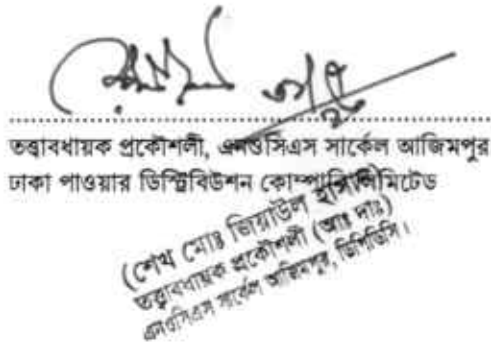 তত্ত্বাবধায়ক প্রকৌশলী, এনওসিএস সার্কেল আজিমপুর
ঢাকা পাওয়ার ডিস্ট্রিবিউশন কোম্পানি লিমিটেড
(শেখ মোঃ জিয়াউল হাসান)
তত্ত্বাবধায়ক প্রকৌশলী (আঃ দাঃ)
এনওসিএস সার্কেল আজিমপুর, ডিপিডিসি।